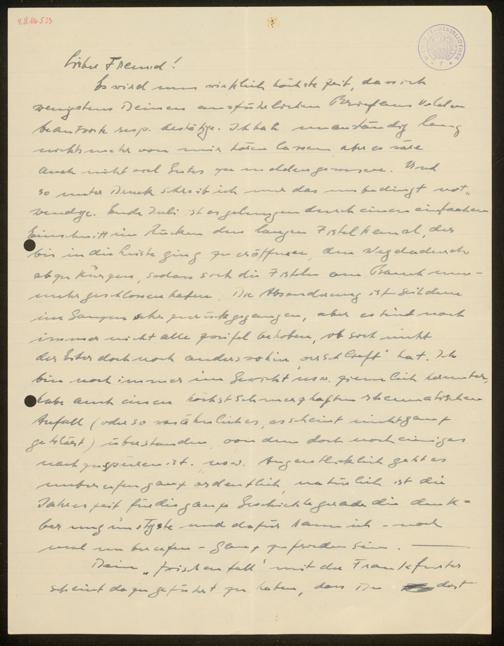 Lieber Freund!
Es wird nun wirklich höchste Zeit, dass ich
wenigstens Deinen ausführlichen Brief aus
beantworte resp. bestätige. Ich hab unanständig lang
nichts mehr von mir hören lassen aber es wäre
auch nicht viel Gutes zu melden gewesen. Und
so unter Druck schreib ich nur das unbedingt not-
wendige. Ende Juli ist es gelungen durch einen einfachen
Einschnitt im Rücken den langen Fistelkanal, der
bis in die Leiste ging zu eröffnen, den Weg dadurch
abzukürzen, sodass sich die Fisteln am Bauch nun-
mehr geschlossen haben. Die Absonderung ist seitdem
im Ganzen sehr zurückgegangen, aber es sind noch
immer nicht alle Zweifel behoben, ob sich nicht
der Eiter doch noch anderswohin „verschlauft" hat. Ich
bin noch immer im Gewicht usw. ziemlich herunter,
habe auch einen höchst schmerzhaften rheumatischen
Anfall (oder so was ähnliches, es scheint nicht ganz
geklärt) überstanden, von dem doch noch einiges
nach zu spüren ist. usw. Augenblicklich geht es
unberufen ganz ordentlich, natürlich ist die
Jahreszeit für die ganze Geschichte gerade die denk-
bar ungünstigste und dafür kann ich - noch
mal unberufen - ganz zufrieden sein. —
Dein „Zwischenfall" mit der Frankfurter
scheint dazu geführt zu haben, dass Du dort